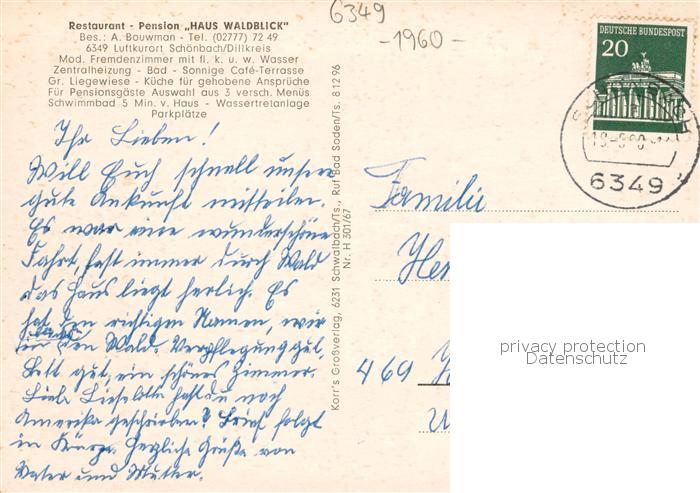 Restaurant - Pension „HAUS WALDBLICK"
Bes.: A. Bouwman - Tel. (02777) 72 49
6349 Luftkurort Schönbach/Dillkreis
Mod. Fremdenzimmer mit fl. k. u. w. Wasser
Zentralheizung - Bad - Sonnige Café-Terrasse
Gr. Liegewiese - Küche für gehobene Ansprüche
Für Pensionsgäste Auswahl aus 3 versch. Menüs
Schwimmbad 5 Min. v. Haus - Wassertretanlage
Parkplätze
Ihr Lieben!
Will Euch schnell unsere
gute Ankunft mitteilen.
Es war eine wunderschöne
Fahrt, fast immer durch Wald
das Haus liegt herlich. Es
hat den richtigen Namen, wir
den Wald. Verpflegung gut,
Bett gut, ein schönes Zimmer.
Liebe Lieselotte hast du noch
Amerika geschrieben? Brief folgt
in Kürze. Herzliche Grüße von
Vater und Mutter.
Korr's Großverlag, 6231 Schwalbach/Ts., Ruf Bad Soden/Ts. 8 12 96
Nr. H 301/67
6349
-1960-
DEUTSCHE BUNDESPOST
20
6349
Familie
He
469
privacy protection
Datenschutz